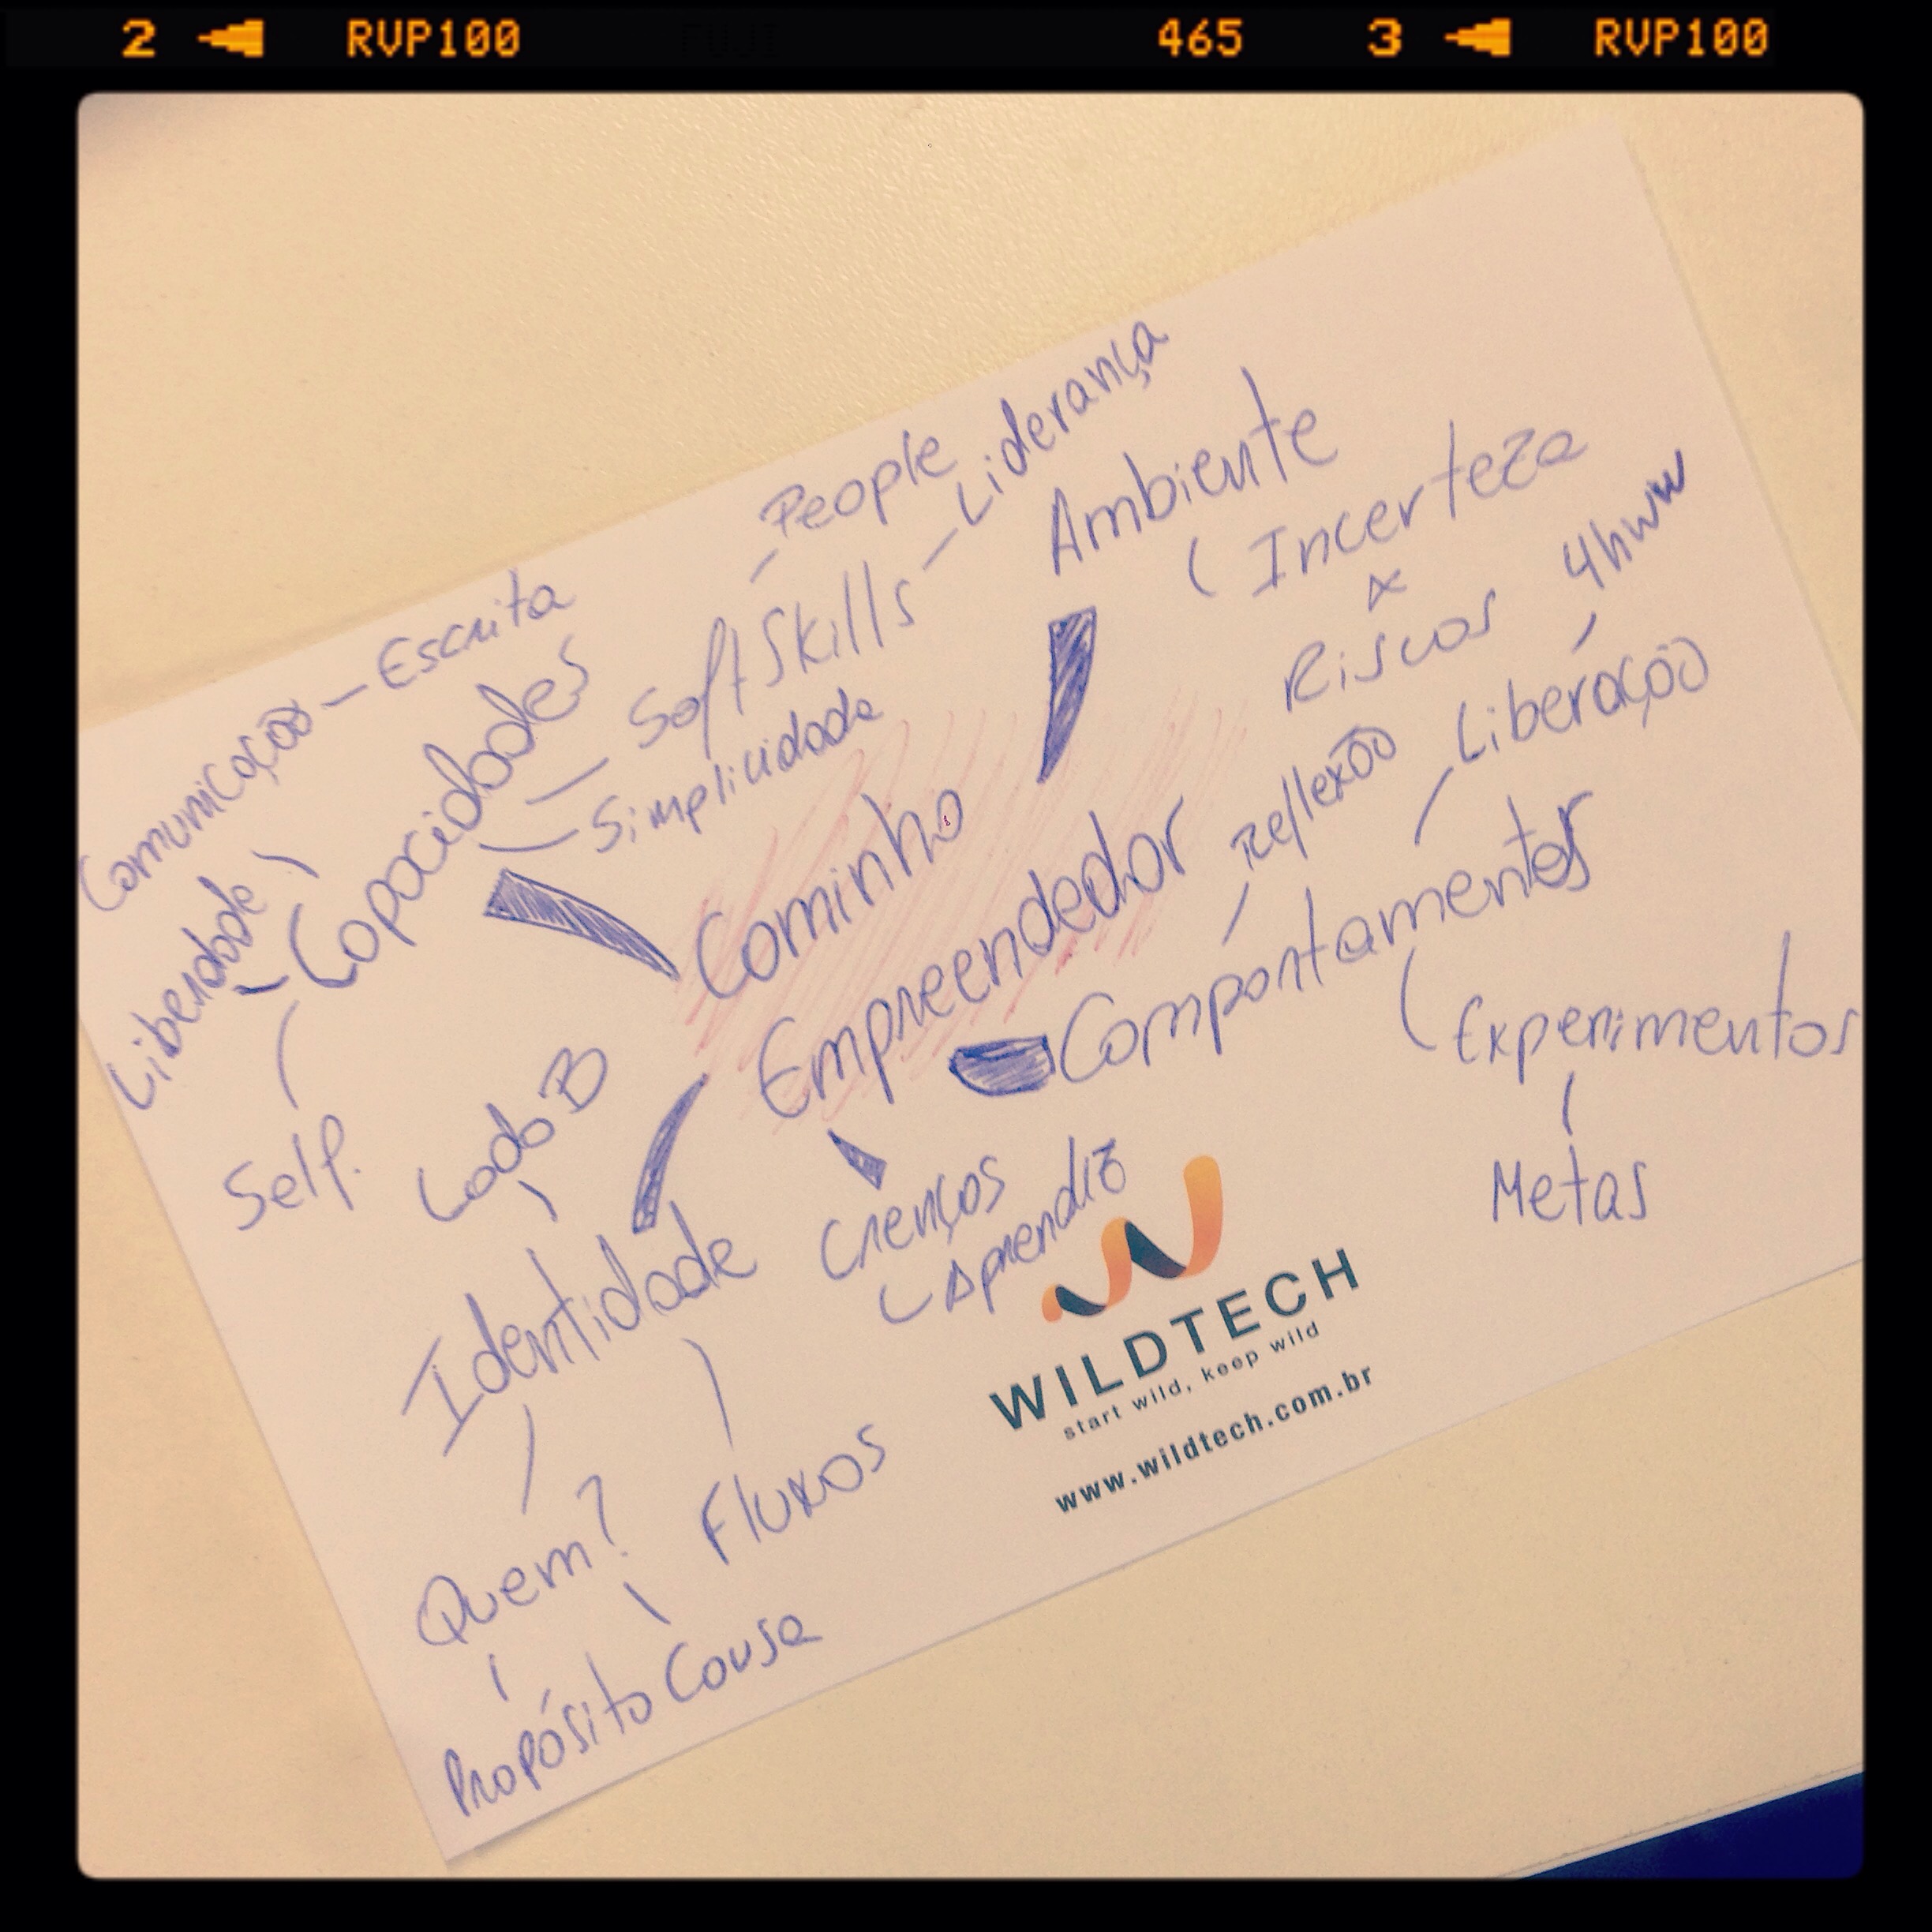 2 RVP100 FUJI 465 3 RVP100
People
Liderança
Ambiente
Incerteza
x
Riscos
4hww
Liberação
Comunicação - Escrita
Soft Skills
Simplicidade
Capacidades
Liberdade
Self.
Caminho
Empreendedor
Reflexão
Comportamentos
Experimentos
Metas
Lado B
Identidade
Crenças
Aprendiz
Quem?
Fluxos
Propósito
Causa
WILDTECH
start wild, keep wild
www.wildtech.com.br